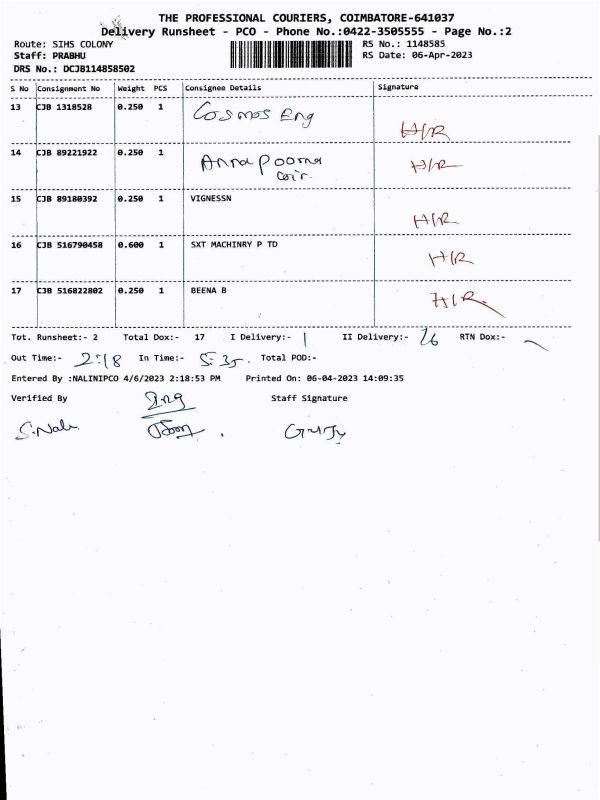 THE PROFESSIONAL COURIERS, COIMBATORE-641037
Delivery Runsheet - PCO - Phone No.:0422-3505555 - Page No.:2
Route: SIHS COLONY RS No.: 1148585
Staff: PRABHU RS Date: 06-Apr-2023
DRS No.: DCJB114858502
S No Consignment No Weight PCS Consignee Details Signature
13 CJB 1318528 0.250 1 Cosmos Eng H/R
14 CJB 89221922 0.250 1 Annapoorna H/R
15 CJB 89180392 0.250 1 VIGNESSN H/R
16 CJB 516790458 0.600 1 SXT MACHINRY P TD H/R
17 CJB 516822802 0.250 1 BEENA B H/R
Tot. Runsheet:- 2 Total Dox:- 17 I Delivery:- 1 II Delivery:- 16 RTN Dox:-
Out Time:- 2:18 In Time:- 5:35 Total POD:-
Entered By :NALINIPCO 4/6/2023 2:18:53 PM Printed On: 06-04-2023 14:09:35
Verified By Staff Signature